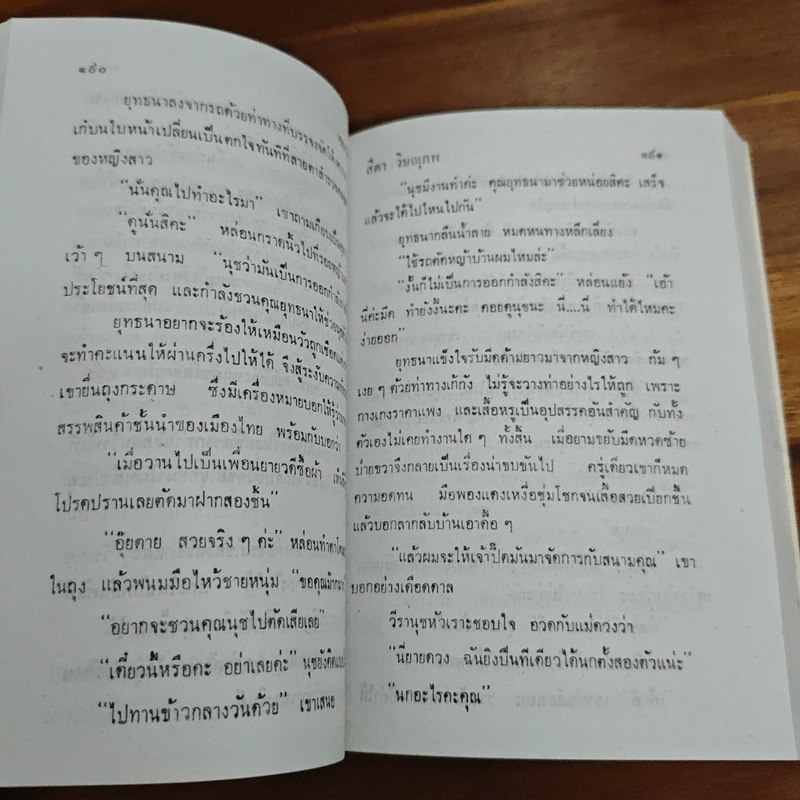 ๑๙๐
ยุทธนาลงจากรถด้วยท่าทางที่บรรจง
เก๋บนใบหน้าเปลี่ยนเป็นตกใจทันทีที่สายตา
ของหญิงสาว
“นั่นคุณไปทำอะไรมา” เขาถาม
“ดูนั่นสิคะ” หล่อนกราดนิ้วไปที่
เว้าๆ บนสนาม “นุชว่ามันเป็นการออกกำลัง
ประโยชน์ที่สุด และกำลังชวนคุณยุทธนาให้ช่วย
ยุทธนาอยากจะร้องให้เหมือนวัวถูกเชือด
จะทำคะแนนให้ผ่านครึ่งไปให้ได้ จึงสู้ระงับความ
เขายื่นถุงกระดาษ ซึ่งมีเครื่องหมายบอกให้รู้ว่า
สรรพสินค้าชั้นนำของเมืองไทย พร้อมกับบอกว่า
“เมื่อวานไปเป็นเพื่อนยายวดีซื้อผ้า
โปรดปรานเลยตัดมาฝากสองชิ้น”
“อุ๊ยตาย สวยจริง ๆ ค่ะ” หล่อนทำตา
ในถุง แล้วพนมมือไหว้ชายหนุ่ม “ขอบคุณ
“อยากจะชวนคุณนุชไปตัดเสียเลย”
“เดี๋ยวนี้หรือคะ อย่าเลยค่ะ” นุชยัง
“ไปทานข้าวกลางวันด้วย” เขาเสนอ
สีดา วิษณุภพ ๑๙๑
“นุชมีงานทำค่ะ คุณยุทธนามาช่วยหน่อยสิคะ เสร็จ
แล้วจะได้ไปไหนไปกัน”
ยุทธนากลืนน้ำลาย หมดหนทางหลีกเลี่ยง
“ใช้รถตัดหญ้าบ้านผมไหมล่ะ”
“งั้นก็ไม่เป็นการออกกำลังสิคะ” หล่อนแย้ง “เอ้า
นี่ค่ะมีด ทำยังงี้นะคะ คอยดูนุชนะ นี่....นี่ ทำได้ไหมคะ
ง่ายออก”
ยุทธนาแข็งใจรับมีดด้ามยาวมาจากหญิงสาว ก้ม ๆ
เงย ๆ ด้วยท่าทางเก้กัง ไม่รู้จะวางท่าอย่างไรให้ถูก เพราะ
กางเกงราคาแพง และเสื้อหรูเป็นอุปสรรคอันสำคัญ กับทั้ง
ตัวเองไม่เคยทำงานใด ๆ ทั้งสิ้น เมื่อยามขยับมีดหวดซ้าย
บ่ายขวาจึงกลายเป็นเรื่องน่าขบขันไป ครู่เดียวเขาก็หมด
ความอดทน มือพองแดงเหงื่อชุ่มโชกจนเสื้อสวยเปียกชื้น
แล้วบอกลากลับบ้านเอาดื้อ ๆ
“แล้วผมจะให้เจ้าปี๊ดมันมาจัดการกับสนามคุณ” เขา
บอกอย่างเดือดดาล
วีรานุชหัวเราะชอบใจ อวดกับแม่ดวงว่า
“นี่ยายดวง ฉันยิงปืนทีเดียวได้นกตั้งสองตัวแน่ะ”
“นกอะไรคะคุณ”